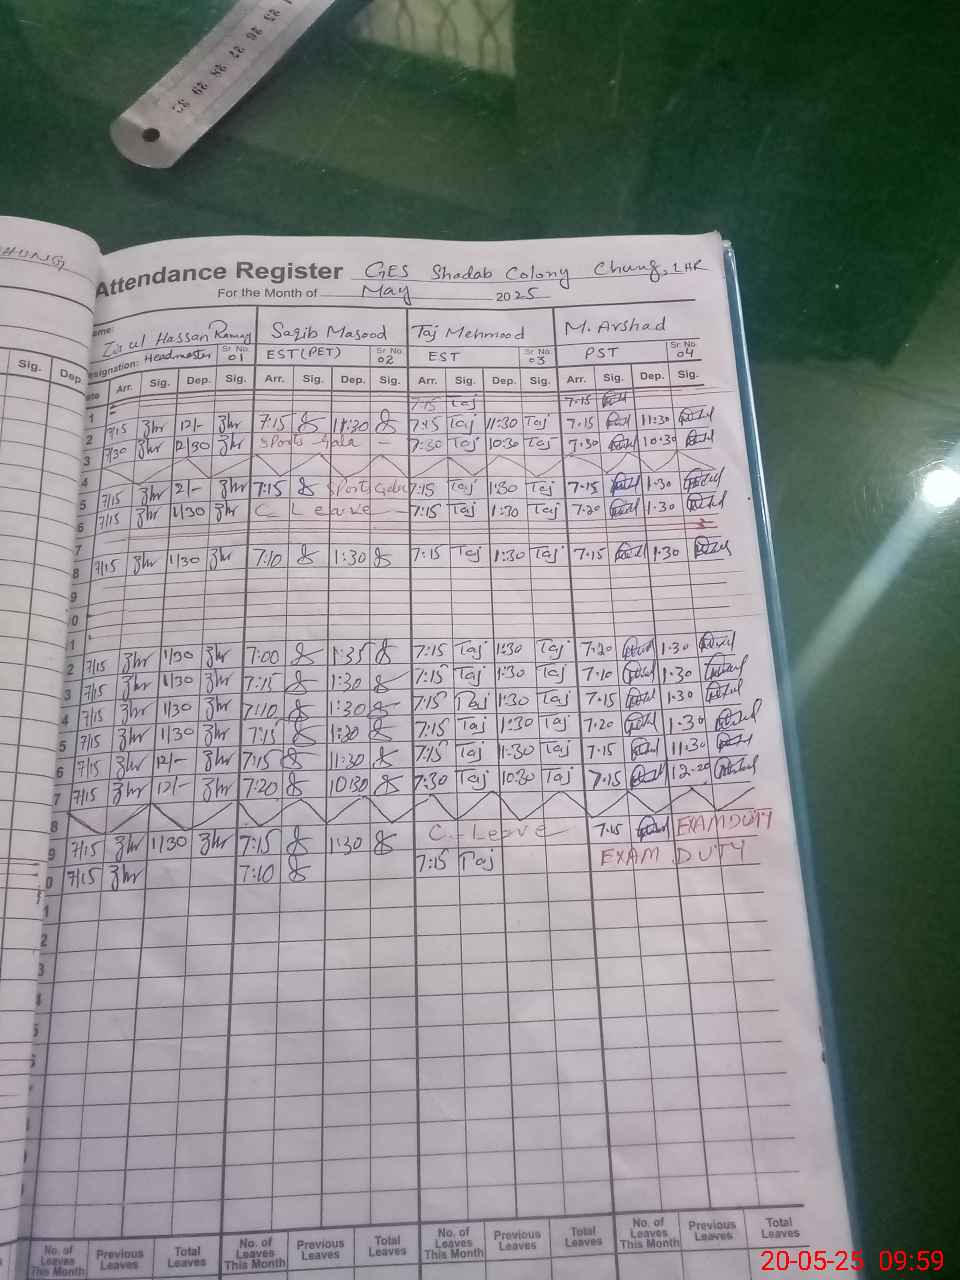 33 29 28 27 26 25
HUNG
Attendance Register GES Shadab Colony Chung, LHR
For the Month of May 2025
Name: Hassan Ramay Saqib Masood Taj Mehmood M. Arshad
Designation: Headmaster Sr No. 01 EST (PET) Sr No. 02 EST Sr No. 03 PST Sr No. 04
Sig. Dep. Date Arr. Sig. Dep. Sig. Arr. Sig. Dep. Sig. Arr. Sig. Dep. Sig. Arr. Sig. Dep. Sig.
1 7:15 Taj 7.15
2 7/15 Zhr 12/- Zhr 7:15 11:30 7:15 Taj 11:30 Taj 7.15 11.30
3 7/30 Zhr 12/30 Zhr Sports Gala - 7:30 Taj 10:30 Taj 7.30 10.30
4
5 7/15 Zhr 2/- Zhr 7:15 Sports Gala 7:15 Taj 1:30 Taj 7.15 1.30
6 7/15 Zhr 1/30 Zhr C Leave 7:15 Taj 1:30 Taj 7.20 1.30
7
8 7/15 Zhr 1/30 Zhr 7:10 1:30 7:15 Taj 1:30 Taj 7.15 1.30
9
0
1
2 7/15 Zhr 1/30 Zhr 7:00 1:35 7:15 Taj 1:30 Taj 7.20 1.30
3 7/15 Zhr 1/30 Zhr 7:15 1:30 7:15 Taj 1:30 Taj 7.10 1.30
4 7/15 Zhr 1/30 Zhr 7:10 1:30 7:15 Taj 1:30 Taj 7.15 1.30
5 7/15 Zhr 1/30 Zhr 7:15 1:30 7:15 Taj 1:30 Taj 7.20 1.30
6 7/15 Zhr 12/- Zhr 7:15 11:30 7:15 Taj 11:30 Taj 7.15 11.30
7 7/15 Zhr 12/- Zhr 7:20 10:30 7:30 Taj 10:30 Taj 7.15 12.20
8
9 7/15 Zhr 1/30 Zhr 7:15 1:30 C. Leave 7.15 EXAM DUTY
0 7/15 Zhr 7:10 7:15 Taj EXAM DUTY
1
2
3
4
5
6
No. of Leaves This Month Previous Leaves Total Leaves No. of Leaves This Month Previous Leaves Total Leaves No. of Leaves This Month Previous Leaves Total Leaves No. of Leaves This Month Previous Leaves Total Leaves
20-05-25 09:59